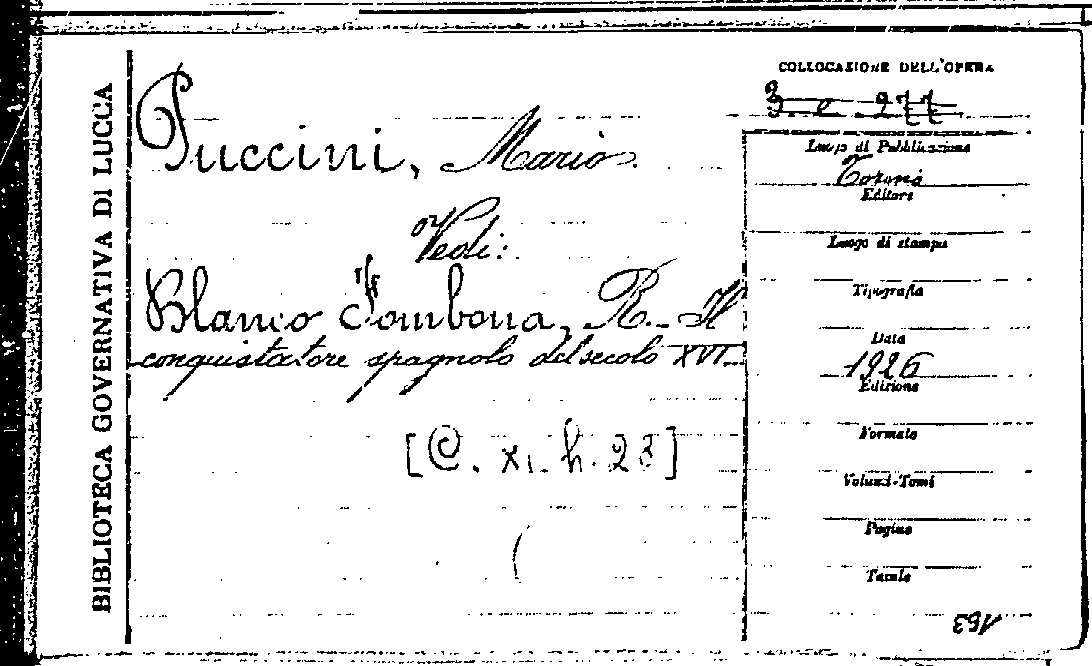 BIBLIOTECA GOVERNATIVA DI LUCCA
Puccini, Mario.
Vedi:
Blanco Fombona, R. - Il
conquistatore spagnolo del secolo XVI.
[C. XI. h. 23]
COLLOCAZIONE DELL'OPERA
3. e. 277
Luogo di Pubblicazione
Torino
Editore
Luogo di stampa
Tipografia
Data
1926
Edizione
Formato
Volumi-Tomi
Pagine
Tavole
153